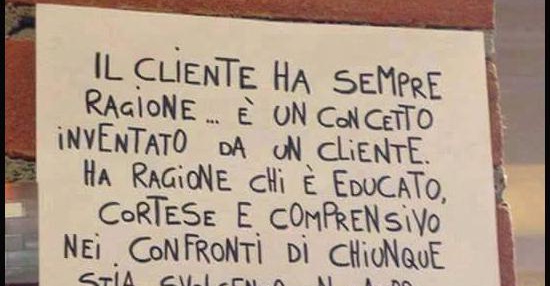 IL CLIENTE HA SEMPRE
RAGIONE... È UN CONCETTO
INVENTATO DA UN CLIENTE.
HA RAGIONE CHI È EDUCATO,
CORTESE E COMPRENSIVO
NEI CONFRONTI DI CHIUNQUE
STIA